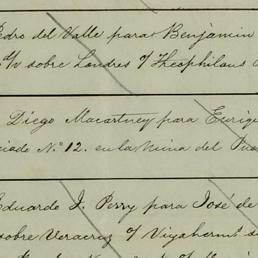 Pedro del Valle para Benjamin
d/v sobre Londres o/ Theophilaus
Diego Macartney para Enriq
ciado No. 12. en la Mina del
Eduardo J. Perry para José de
sobre Veracruz o/